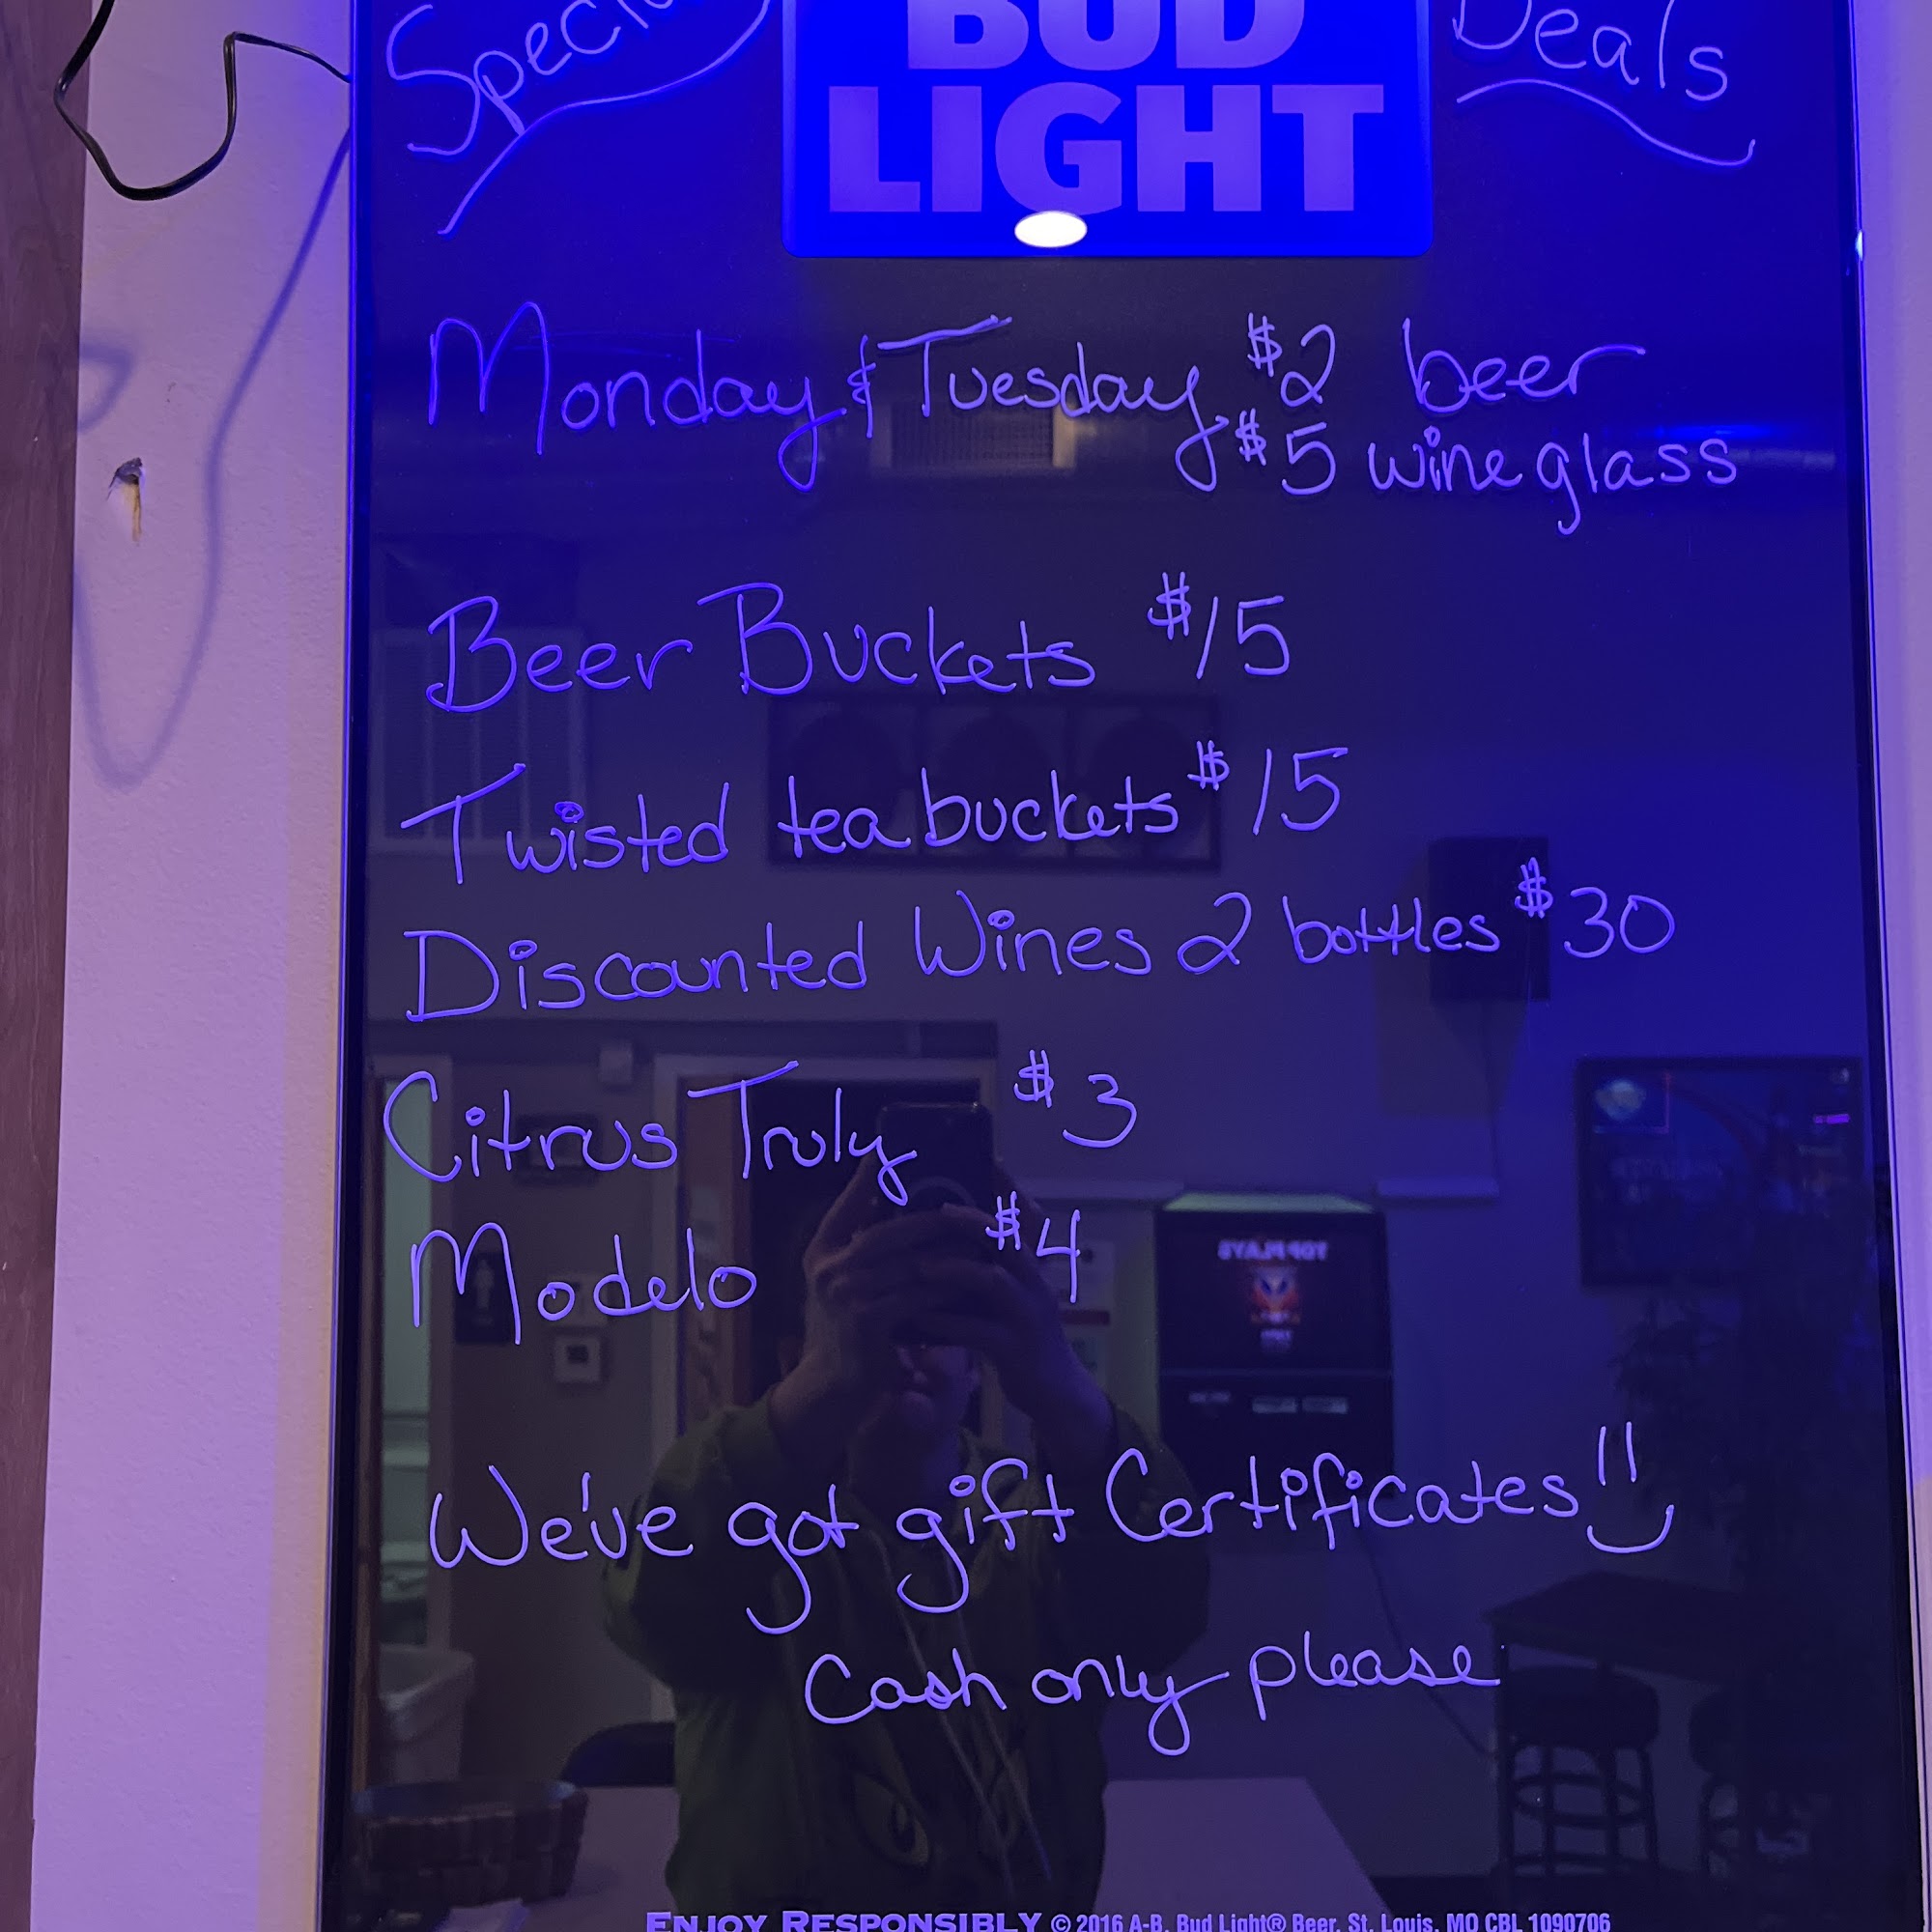 BUD
LIGHT
Deals
Monday & Tuesday $2 beer
$5 wine glass
Beer Buckets $15
Twisted tea buckets $15
Discounted Wines 2 bottles $30
Citrus Truly $3
Modelo $4
We've got gift Certificates!!
Cash only please
ENJOY RESPONSIBLY © 2016 A-B, Bud Light® Beer, St. Louis, MO CBL 1090706